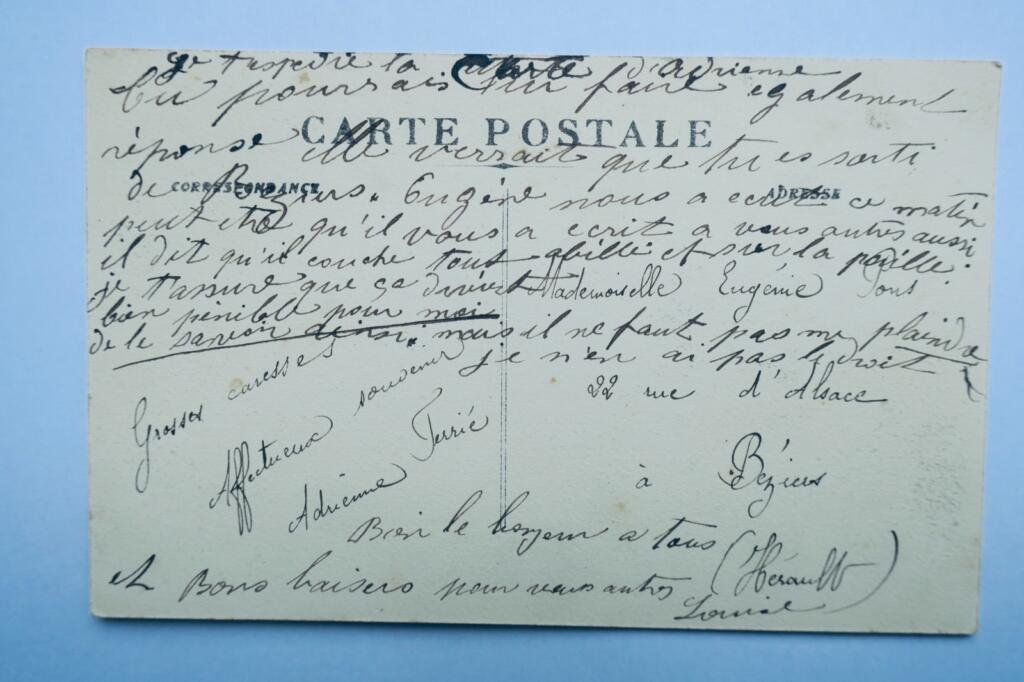 Je t'expédie la Carte d'Adrienne
tu pourrais lui faire également
CARTE POSTALE
réponse elle verrait que tu es sorti
CORRESPONDANCE
ADRESSE
de Béziers. Eugène nous a ecrit ce matin
peut etre qu'il vous a ecrit a vous autres aussi
il dit qu'il couche tout abillé et sur la paille.
je t'assure que ça devient
Mademoiselle Eugénie Pons
bien pénible pour moi
de le savoir ainsi. mais il ne faut pas me plaindre
je n'en ai pas le droit
22 rue d'Alsace
Grosses caresses
Affectueux souvenir
Adrienne Ferrié
à Béziers
Bien le bonjour a tous
(Hérault)
et Bons baisers pour vous autres
Louise